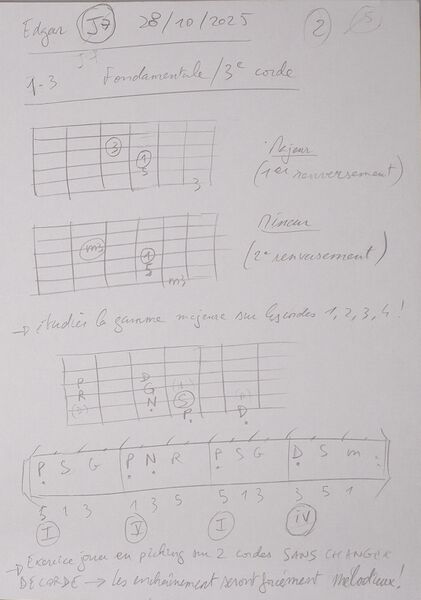 Edgar J7 28/10/2025 2 5
J7
1-3 Fondamentale / 3e corde
3
1
5
3
Majeur
(1er renversement)
m3
1
5
m3
Mineur
(2e renversement)
→ étudier la gamme majeure sur les cordes 1, 2, 3, 4 !
P D
R G (1)
(3) N S (1)
P D
P S G P N R P S G D S m
5 1 3 1 3 5 5 1 3 3 5 1
I V I IV
→ Exercice jouer en picking sur 2 cordes SANS CHANGER
DE CORDE → les enchaînement seront forcément mélodieux !